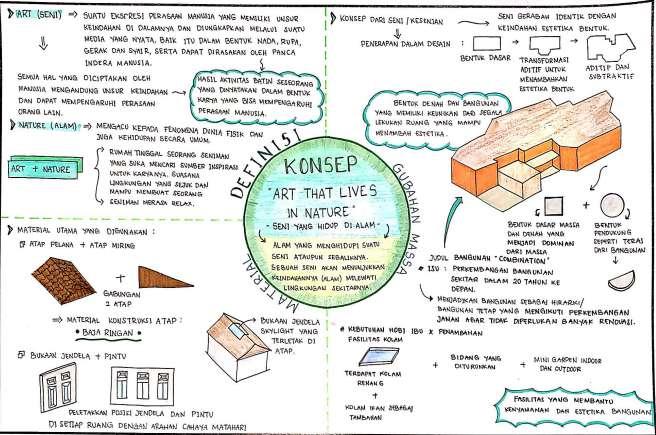 ART (SENI) ⇒ SUATU EKSPRESI PERASAAN MANUSIA YANG MEMILIKI UNSUR
KEINDAHAN DI DALAMNYA DAN DIUNGKAPKAN MELALUI SUATU
MEDIA YANG NYATA, BAIK ITU DALAM BENTUK NADA, RUPA,
GERAK DAN SYAIR, SERTA DAPAT DIRASAKAN OLEH PANCA
INDERA MANUSIA.
SEMUA HAL YANG DICIPTAKAN OLEH
MANUSIA MENGANDUNG UNSUR KEINDAHAN
DAN DAPAT MEMPENGARUHI PERASAAN
ORANG LAIN.
HASIL AKTIVITAS BATIN SESEORANG
YANG DINYATAKAN DALAM BENTUK
KARYA YANG BISA MEMPENGARUHI
PERASAAN MANUSIA.
NATURE (ALAM) ⇒ MENGACU KEPADA FENOMENA DUNIA FISIK DAN
JUGA KEHIDUPAN SECARA UMUM.
ART + NATURE
RUMAH TINGGAL SEORANG SENIMAN
YANG SUKA MENCARI SUMBER INSPIRASI
UNTUK KARYANYA. SUASANA
LINGKUNGAN YANG SEJUK DAN
MAMPU MEMBUAT SEORANG
SENIMAN MERASA RELAX.
DEFINISI
GUBAHAN MASSA
MATERIAL
KONSEP
"ART THAT LIVES
IN NATURE"
- SENI YANG HIDUP DI ALAM -
ALAM YANG MENGHIDUPI SUATU
SENI ATAUPUN SEBALIKNYA.
SEBUAH SENI AKAN MENUNJUKKAN
KEINDAHANNYA (ALAM) MELEWATI
LINGKUNGAN SEKITARNYA.
KONSEP DARI SENI / KESENIAN
SENI GERABAH IDENTIK DENGAN
KEINDAHAN ESTETIKA BENTUK.
PENERAPAN DALAM DESAIN :
BENTUK DASAR
TRANSFORMASI
ADITIF UNTUK
MENAMBAHKAN
ESTETIKA BENTUK
ADITIF DAN
SUBTRAKTIF
BENTUK DENAH DAN BANGUNAN
YANG MEMILIKI KEUNIKAN DARI SEGALA
LEKUKAN RUANG YANG MAMPU
MENAMBAH ESTETIKA.
BENTUK DASAR MASSA
DAN DENAH YANG
MENJADI DOMINAN
DARI MASSA
BENTUK
PENDUKUNG
SEPERTI TERAS
DARI BANGUNAN
JUDUL BANGUNAN "COMBINATION"
ISU : PERKEMBANGAN BANGUNAN
SEKITAR DALAM 20 TAHUN KE
DEPAN.
MENJADIKAN BANGUNAN SEBAGAI HIRARKI/
BANGUNAN TETAP YANG MENGIKUTI PERKEMBANGAN
JAMAN AGAR TIDAK DIPERLUKAN BANYAK RENOVASI.
MATERIAL UTAMA YANG DIGUNAKAN :
ATAP PELANA + ATAP MIRING
+
GABUNGAN
2 ATAP
⇒ MATERIAL KONSTRUKSI ATAP :
BAJA RINGAN
BUKAAN JENDELA
SKYLIGHT YANG
TERLETAK DI
ATAP.
BUKAAN JENDELA + PINTU
PELETAKKAN POSISI JENDELA DAN PINTU
DI SETIAP RUANG DENGAN ARAHAN CAHAYA MATAHARI
# KEBUTUHAN HOBI IBU X PENAMBAHAN
FASILITAS KOLAM
TERDAPAT KOLAM
RENANG
+
KOLAM IKAN SEBAGAI
TAMBAHAN
+
BIDANG YANG
DITURUNKAN
+
MINI GARDEN INDOOR
DAN OUTDOOR
FASILITAS YANG MEMBANTU
KENYAMANAN DAN ESTETIKA BANGUNAN